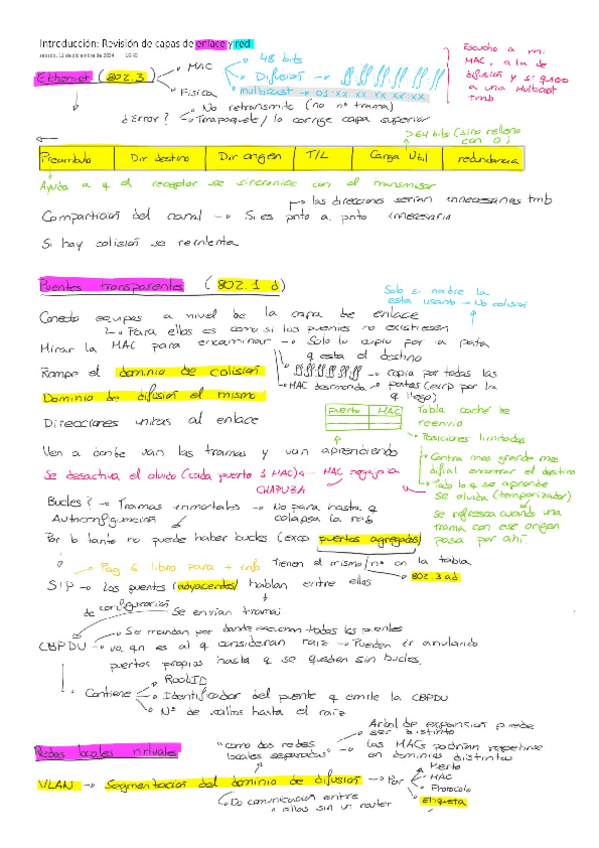 Introducción: Revisión de capas de enlace y red
Ethernet (802.3)
MAC
Física
48 bits
Difusión → ff ff ff ff ff ff
multicast → 01:xx xx xx xx xx
Escucho a mi
MAC, a la de
difusión y si quiero
a una Multicast
tmb
No retransmite (no nº trama)
¿Error?
lo corrige capa superior
>64 bits (sino relleno
con 0)
Preambulo | Dir destino | Dir origen | T/L | Carga Util | redundancia
Ayuda a q el receptor se sincronice con el transmisor
las direcciones serian innecesarias tmb
Compartición del canal → Si es pnto a pnto innecesario
Si hay colisión se reintenta
Puentes transparentes (802.1 d)
Solo si nadie la
esta usando → No colision
Conecta equipos a nivel de la capa de enlace
Para ellos es como si los puentes no existiesen
Mirar la MAC para encaminar → Solo lo copia por la pata
q esta el destino
Rompe el dominio de colisión
ff ff ff ff ff ff → copia por todas las
MAC desconocida → patas (excp por la
q llego)
Dominio de difusión el mismo
Direcciones unicas al enlace
puerto | MAC
Tabla caché de
reenvio
Posiciones limitadas
Ven a donde van las tramas y van aprendiendo
Contra mas grande mas
dificil encontrar el destino
Se desactiva el olvido (cada puerto 1 MAC) ← MAC
CHAPUZA
Todo lo q se aprende
se olvida (temporizador)
Se refresca cuando una
trama con ese origen
pasa por ahí.
Bucles? → Tramas inmortales → No para hasta q
colapsa la red
Autoconfiguración
Por lo tanto no puede haber bucles (excp puertos agregados)
Pag 6 libro para + info
Tienen el mismo nº en la tabla
802.3 ad
STP → Los puentes (adyacentes) hablan entre ellos
de configuración
Se envian tramas
CBPDU
Se mandan por donde escuchan todos los puentes
va qn es al q consideran raiz → Pueden ir anulando
puertos propios hasta q se queden sin bucles.
Contiene
RootID
Identificador del puente q emite la CBPDU
Nº de saltos hasta el raiz
Arbol de expansion puede
ser distinto
Redes locales virtuales
"como dos redes
locales separadas"
las MACs podrian repetirse
en dominios distintos
VLAN → Segmentación del dominio de difusión → Por
Puerto
MAC
Protocolo
Etiqueta
No comunicación entre
ellas sin un router